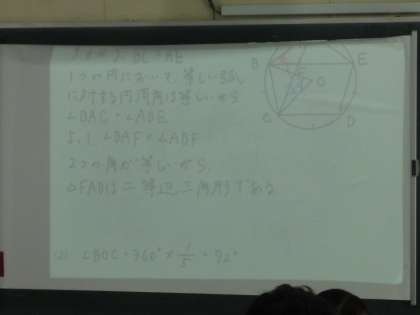 1つの円において、等しい弧
に対する円周角は等しいから
∠DAC=∠ADE
よって ∠DAF=∠ADF
2つの角が等しいから、
△FADは二等辺三角形である
(2) ∠BOC=360°×1/5=72°
B
E
O
C
D